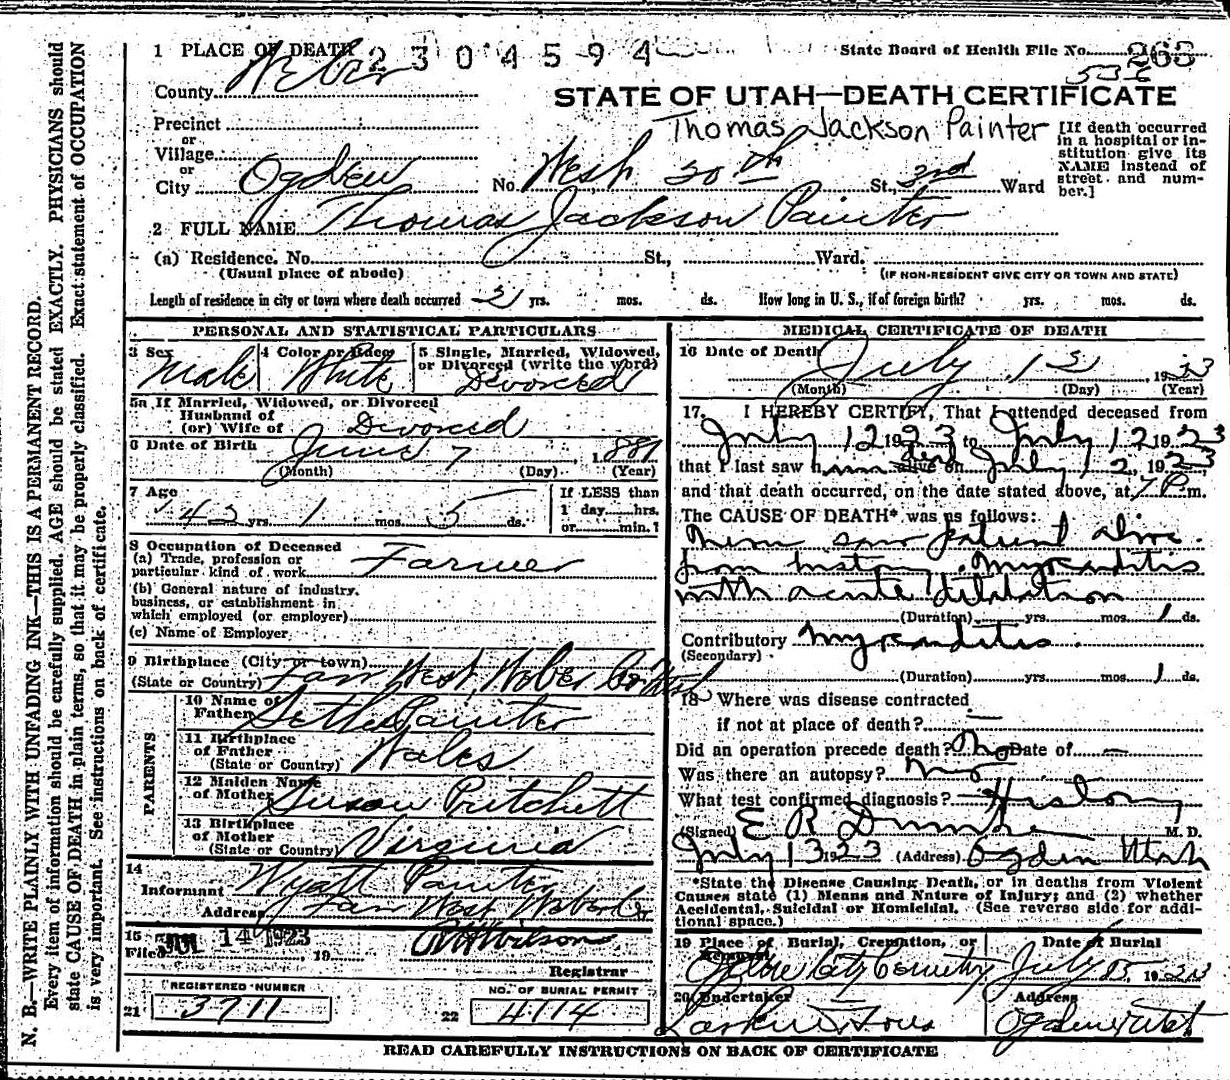 1 PLACE OF DEATH 2304594
State Board of Health File No. 263
536
County Weber
STATE OF UTAH—DEATH CERTIFICATE
Thomas Jackson Painter
Precinct
or
Village
or
City Ogden No. West 30th St., 3rd Ward
[If death occurred
in a hospital or in-
stitution give its
NAME instead of
street and num-
ber.]
2 FULL NAME Thomas Jackson Painter
(a) Residence. No. St., Ward.
(Usual place of abode) (IF NON-RESIDENT GIVE CITY OR TOWN AND STATE)
Length of residence in city or town where death occurred yrs. mos. ds. How long in U. S., if of foreign birth? yrs. mos. ds.
PERSONAL AND STATISTICAL PARTICULARS
3 Sex Male
4 Color or Race White
5 Single, Married, Widowed,
or Divorced (write the word)
Divorced
5a If Married, Widowed, or Divorced
Husband of
(or) Wife of Divorced
6 Date of Birth June 7, 1881
(Month) (Day) (Year)
7 Age 42 yrs. 1 mos. 5 ds.
If LESS than
1 day hrs.
or min.?
8 Occupation of Deceased
(a) Trade, profession or
particular kind of work Farmer
(b) General nature of industry,
business, or establishment in
which employed (or employer)
(c) Name of Employer
9 Birthplace (City or town)
(State or Country) Farr West, Weber Co Utah
PARENTS
10 Name of
Father Painter
11 Birthplace
of Father
(State or Country) Wales
12 Maiden Name
of Mother Susan Pritchett
13 Birthplace
of Mother
(State or Country) Virginia
14
Informant Wyatt Painter
Address Farr West Weber Co
15
Filed JUL 14 1923, 19 Wilson
Registrar
REGISTERED NUMBER
21 3711
NO. OF BURIAL PERMIT
22 4114
MEDICAL CERTIFICATE OF DEATH
16 Date of Death July 12, 1923
(Month) (Day) (Year)
17. I HEREBY CERTIFY, That I attended deceased from
July 12 1923 to July 12 1923
that I last saw him alive on dead July 12, 1923
and that death occurred, on the date stated above, at 7 P m.
The CAUSE OF DEATH* was as follows:
Never saw patient alive.
From history Myocarditis
with acute dilatation
(Duration) yrs. mos. 1 ds.
Contributory Myocarditis
(Secondary)
(Duration) yrs. mos. 1 ds.
18 Where was disease contracted
if not at place of death? —
Did an operation precede death? No Date of —
Was there an autopsy? no
What test confirmed diagnosis? History
(Signed) E R M. D.
July 13 1923 (Address) Ogden Utah
*State the Disease Causing Death, or in deaths from Violent
Causes state (1) Means and Nature of Injury; and (2) whether
Accidental, Suicidal or Homicidal. (See reverse side for addi-
tional space.)
19 Place of Burial, Cremation, or
Removal
Ogden City Cemetery
Date of Burial
July 15 1923
20 Undertaker
Larkin & Sons
Address
Ogden Utah
READ CAREFULLY INSTRUCTIONS ON BACK OF CERTIFICATE
N. B.—WRITE PLAINLY WITH UNFADING INK—THIS IS A PERMANENT RECORD.
Every item of information should be carefully supplied. AGE should be stated EXACTLY. PHYSICIANS should
state CAUSE OF DEATH in plain terms, so that it may be properly classified. Exact statement of OCCUPATION
is very important. See instructions on back of certificate.